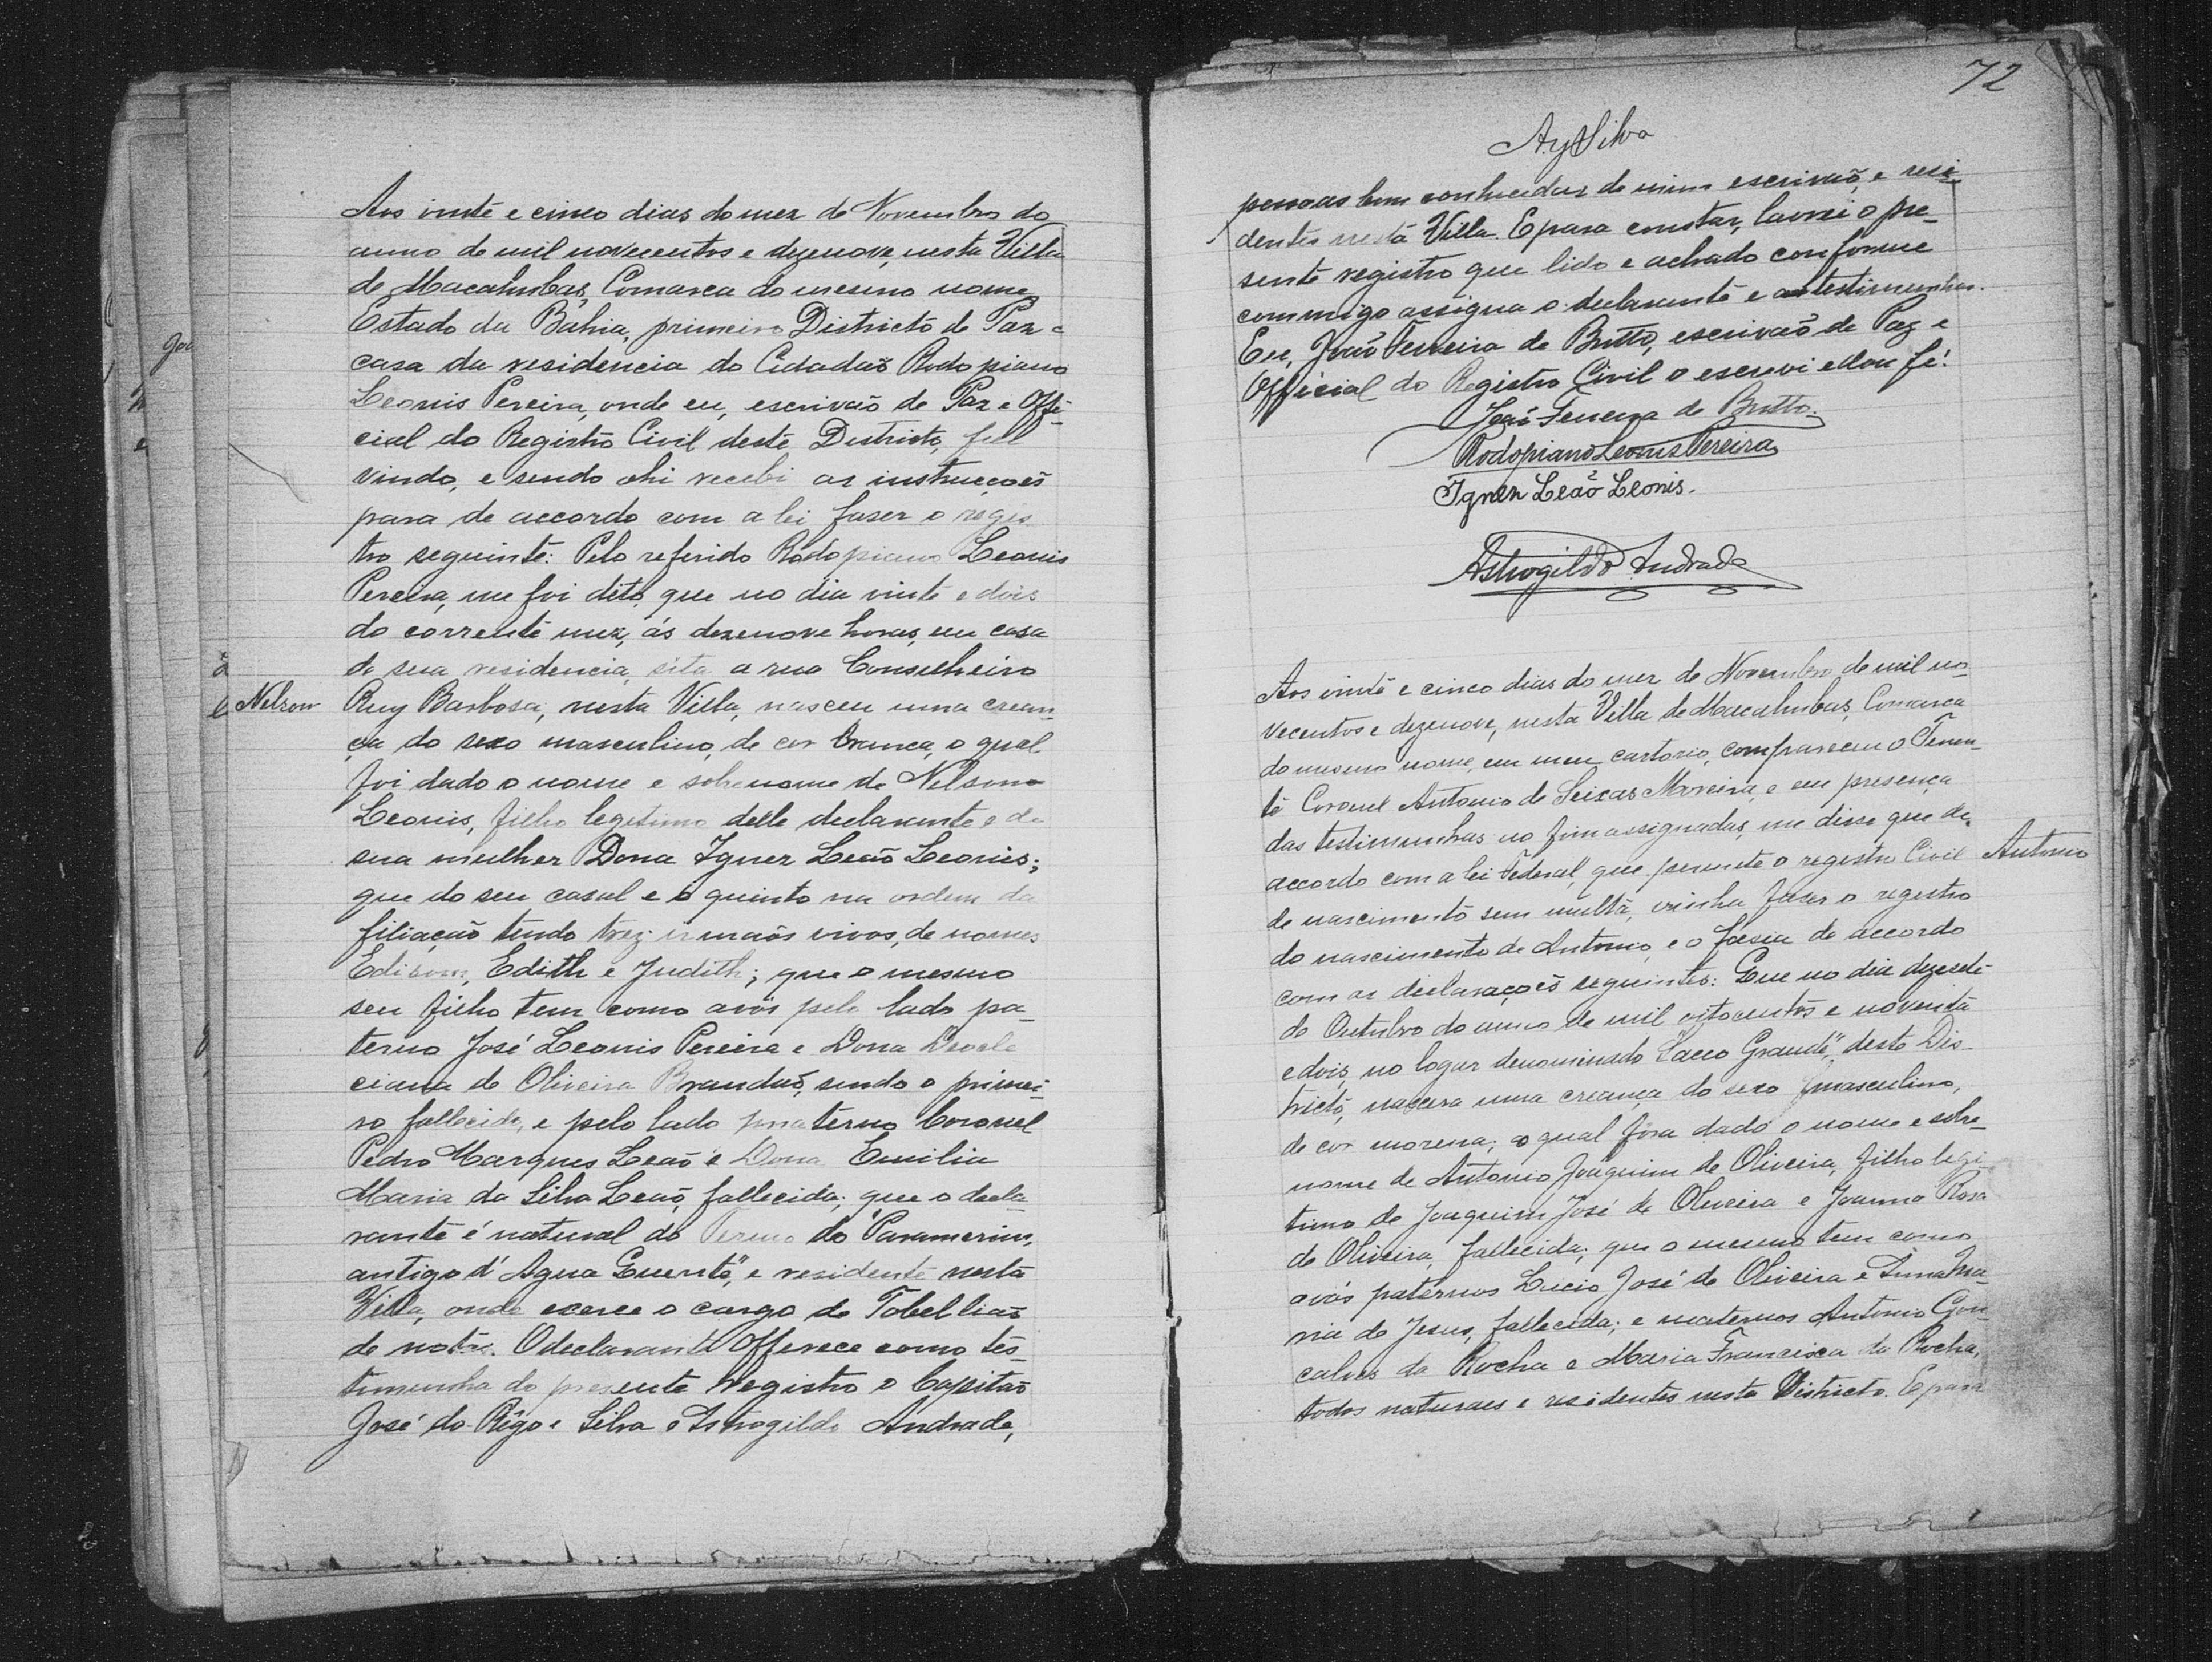 Aos vinte e cinco dias do mez de Novembro do
anno de mil novecentos e dezenove, nesta Villa
de Macahubas, Comarca do mesmo nome,
Estado da Bahia, primeiro Districto de Paz e
casa da residencia do Cidadaõ Rodopiano
Leonis Pereira, onde eu, escrivaõ de Paz e Offi-
cial do Registro Civil deste Districto, fui
vindo, e sendo ahi recebi as instrucçoẽs
para de accordo com a lei faser o regis
tro seguinte: Pelo referido Rodopiano Leonis
Pereira, me foi dito, que no dia vinte e dois
do corrente mez, ás dezenove horas, em casa
de sua residencia, sita a rua Conselheiro
Nelson
Ruy Barbosa, nesta Villa, nasceu uma crean-
ça do sexo masculino, de cor branca, o qual
foi dado o nome e sobrenome de Nelson
Leonis, filho legitimo delle declarante e de
sua mulher Dona Ignez Leaõ Leonis;
que do seu casal e o quinto na ordem da
filiaçaõ tendo trez irmaõs vivos, de nomes
Edison, Edith e Judith; que o mesmo
seu filho tem como avós pelo lado pa-
terno José Leonis Pereira e Dona
de Oliveira Brandaõ, sendo o primei-
ro fallecido, e pelo lado materno Coronel
Pedro Marques Leaõ e Dona Emilia
Maria da Silva Leaõ, fallecida; que o decla-
rante é natural do Termo do "Paramerim,
antigo d' Agua Quente", e residente nesta
Villa, onde exerce o cargo de Tabelliaõ
de notas. O declarante offerece como tes-
timunha do presente registro o Capitaõ
José do Rêgo e Silva e Astrogildo Andrade,
72
A y Silva
pessoas bem conhecidas de mim escrivaõ, e resi-
dentes nesta Villa. E para constar, lavrei o pre-
sente registro que lido e achado conforme
commigo assigna o declarante e as testimunhas.
Eu, Joaõ Ferreira de Britto, escrivaõ de Paz e
Official do Registro Civil o escrevi e dou fé.
Joaõ Ferreira de Britto.
Rodopiano Leonis Pereira
Ignez Leaõ Leonis.
Astrogildo Andrade
Aos vinte e cinco dias do mez de Novembro de mil no-
vecentos e dezenove, nesta Villa de Macahubas, Comarca
do mesmo nome, em meu cartorio, compareceu o Tenen-
te Coronel Antonio de Seixas Moreira, e em presença
das testimunhas no fim assignadas, me disse que de
accordo com a lei Federal, que permite o registro Civil
Antonio
de nascimento sem multa, vinha faser o registro
do nascimento de Antonio, e o fasia de accordo
com as declaraçoẽs seguintes: Que no dia dezesete
de Outubro do anno de mil oitocentos e noventa
e dois, no logar denominado "Sacco Grande", deste Dis-
tricto, nascera uma creança do sexo masculino,
de cor morena; o qual fôra dado o nome e sobre-
nome de Antonio Joaquim de Oliveira, filho legi-
timo de Joaquim José de Oliveira e Joanna Rosa
de Oliveira, fallecida; que o mesmo tem como
avós paternos Lucio José de Oliveira e Anna Ma-
ria de Jesus, fallecida; e maternos Antonio Gon-
calves da Rocha e Maria Francisca da Rocha,
todos naturaes e residentes neste Districto. E para